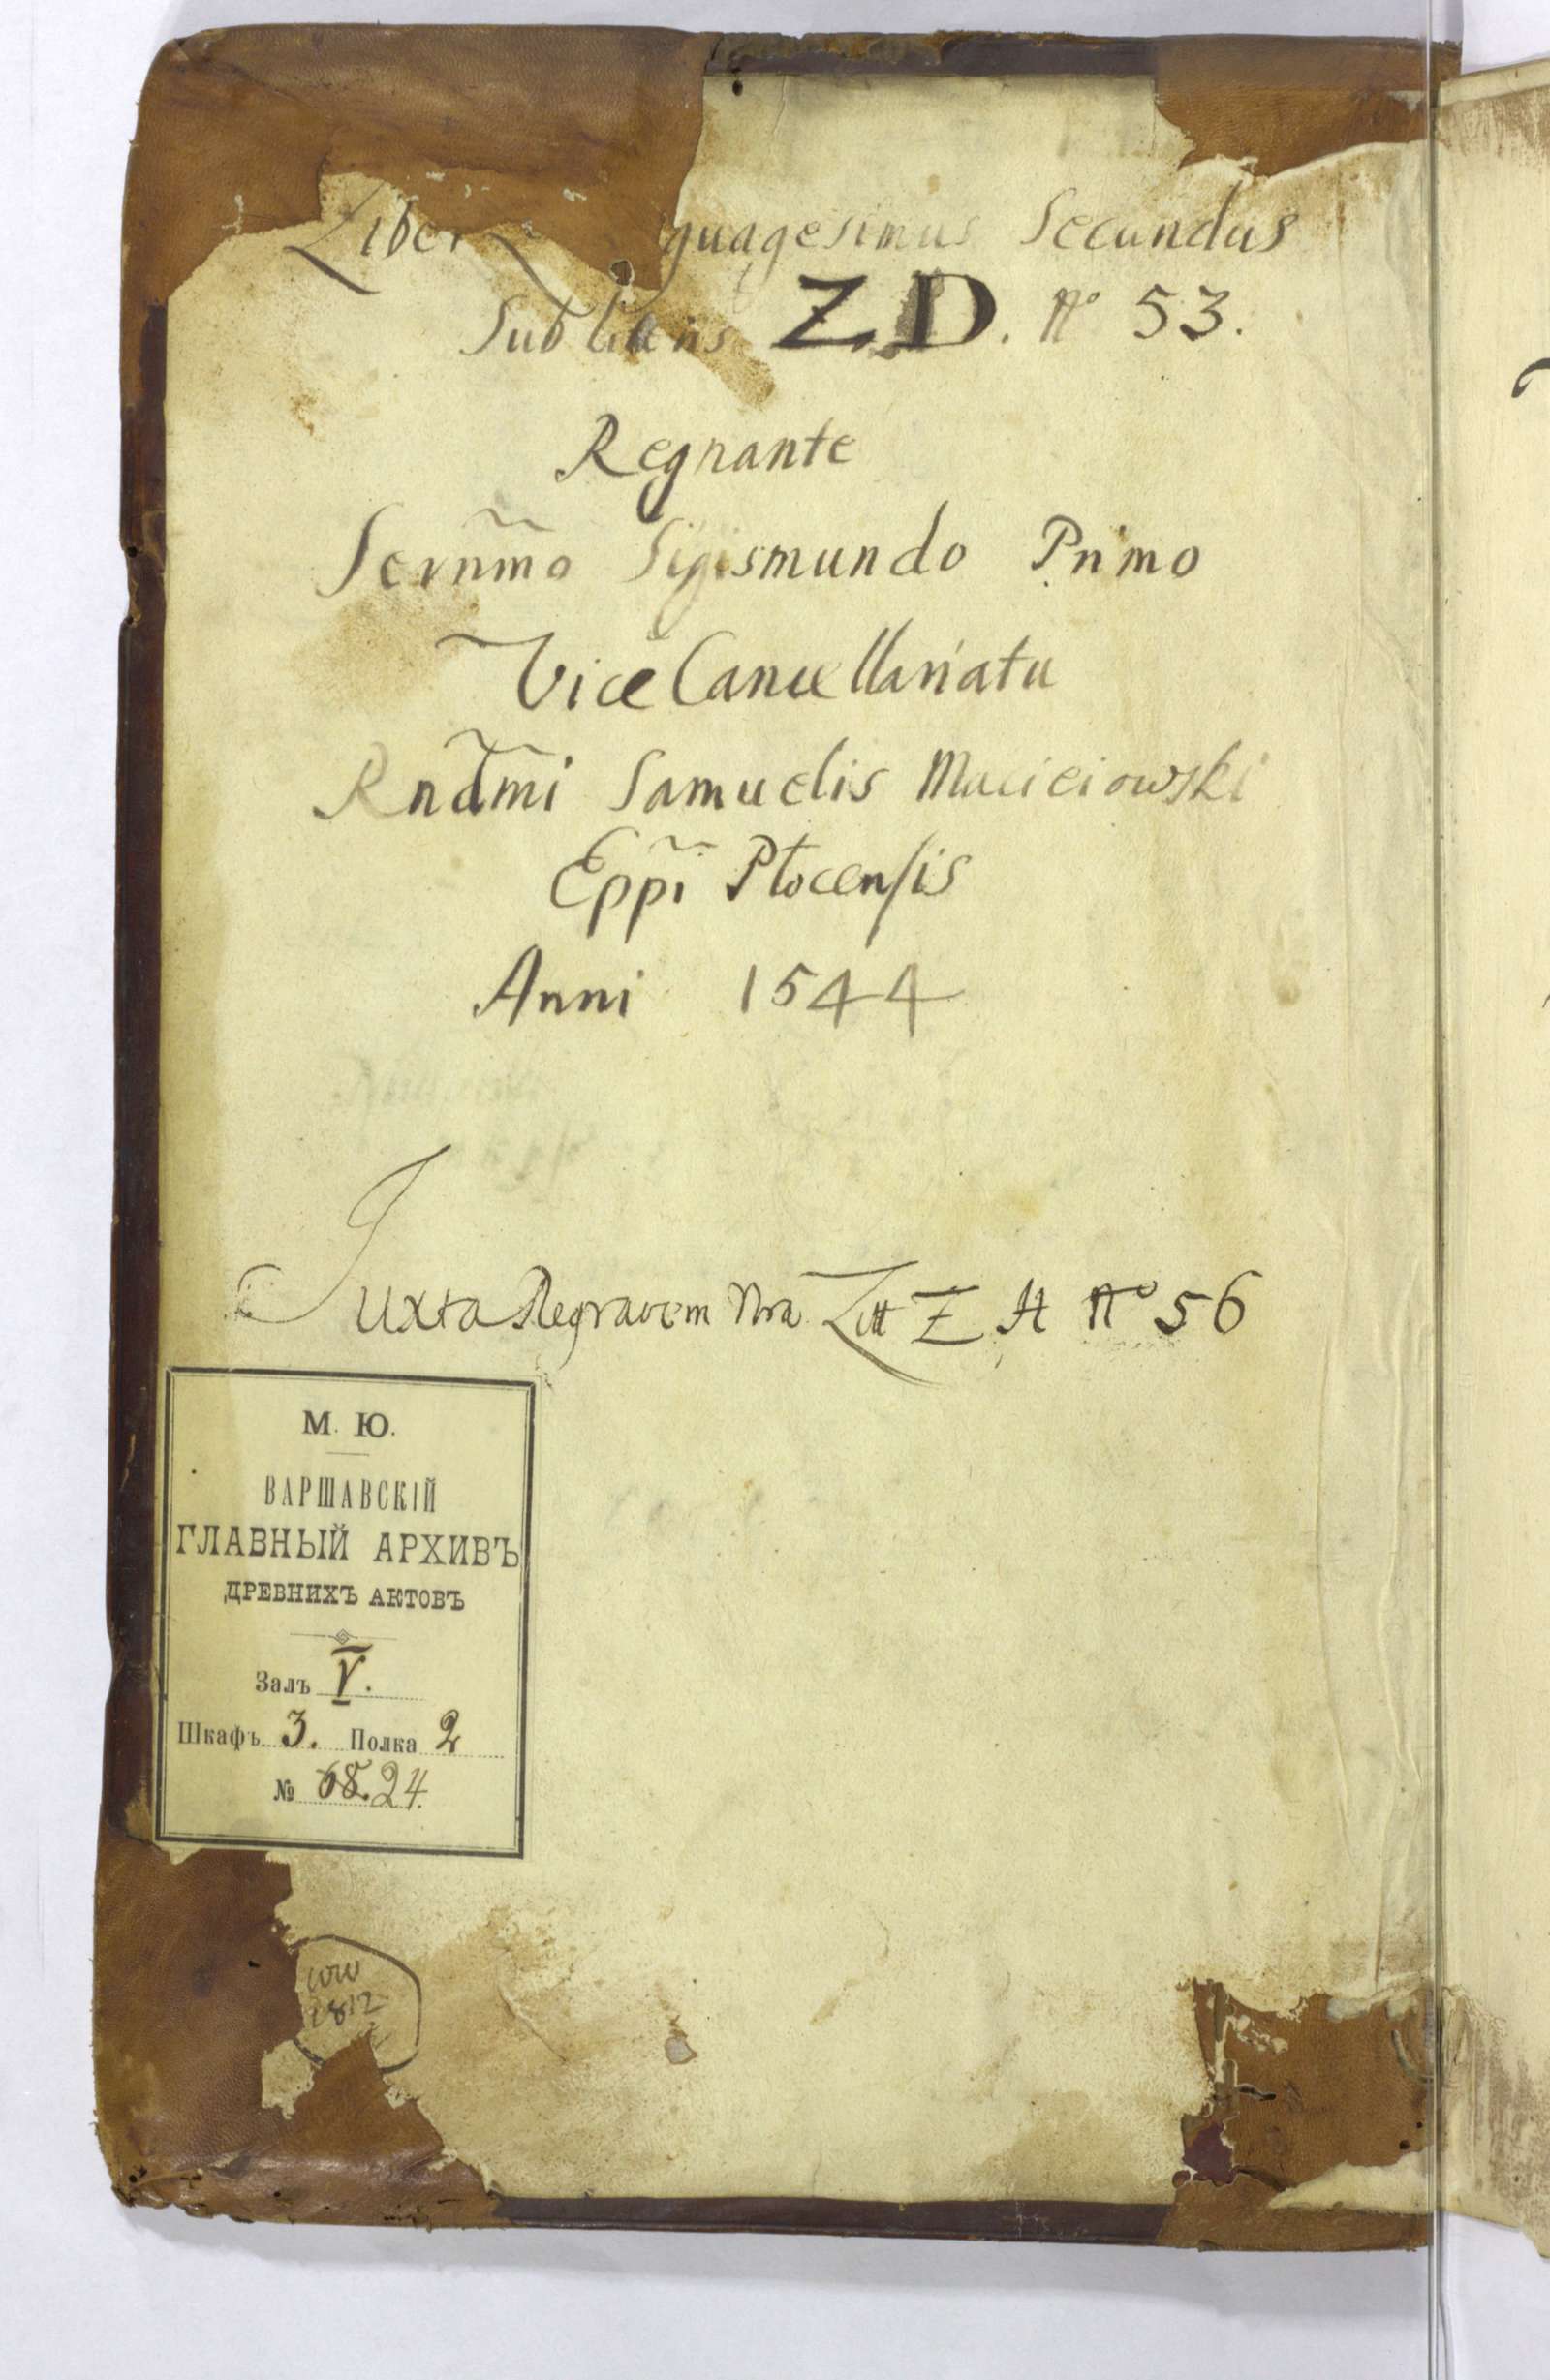 Liber quagesimus Secundus
Sub litteris ZD. No 53.
Regnante
Sernmo Sigismundo Primo
Vice Cancellariatu
Rndmi Samuelis Macieiowski
Eppi Płocensis
Anni 1544
Juxta Nra Litt Z A No 56
М. Ю.
ВАРШАВСКІЙ
ГЛАВНЫЙ АРХИВЪ
ДРЕВНИХЪ АКТОВЪ
Залъ V.
Шкафъ 3. Полка 2
№ 68.24.